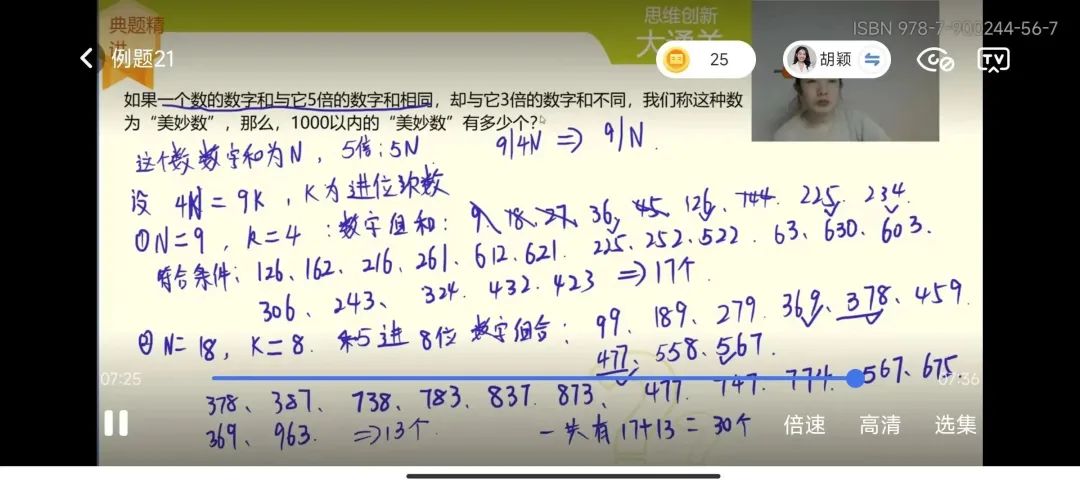 典题精
讲
思维创新
大通关
ISBN 978-7-900244-56-7
例题21
25
胡颖
TV
如果一个数的数字和与它5倍的数字和相同，却与它3倍的数字和不同，我们称这种数
为“美妙数”，那么，1000以内的“美妙数”有多少个？
这个数数字和为N，5倍：5N 9|4N ⇒ 9|N.
设 4N = 9K，K为进位次数
①N=9，k=4：数字组和：9、18、27、36、45、126、144、225、234.
符合条件：126、162、216、261、612、621、225、252、522、63、630、603.
306、243、324、432、423 ⇒17个
②N=18，K=8. 乘5进8位 数字组合：99、189、279、369、378、459
477、558、567.
07:25
07:36
378、387、738、783、837、873、477、747、774、567、675.
369、963. ⇒13个 一共有17+13=30个
倍速
高清
选集